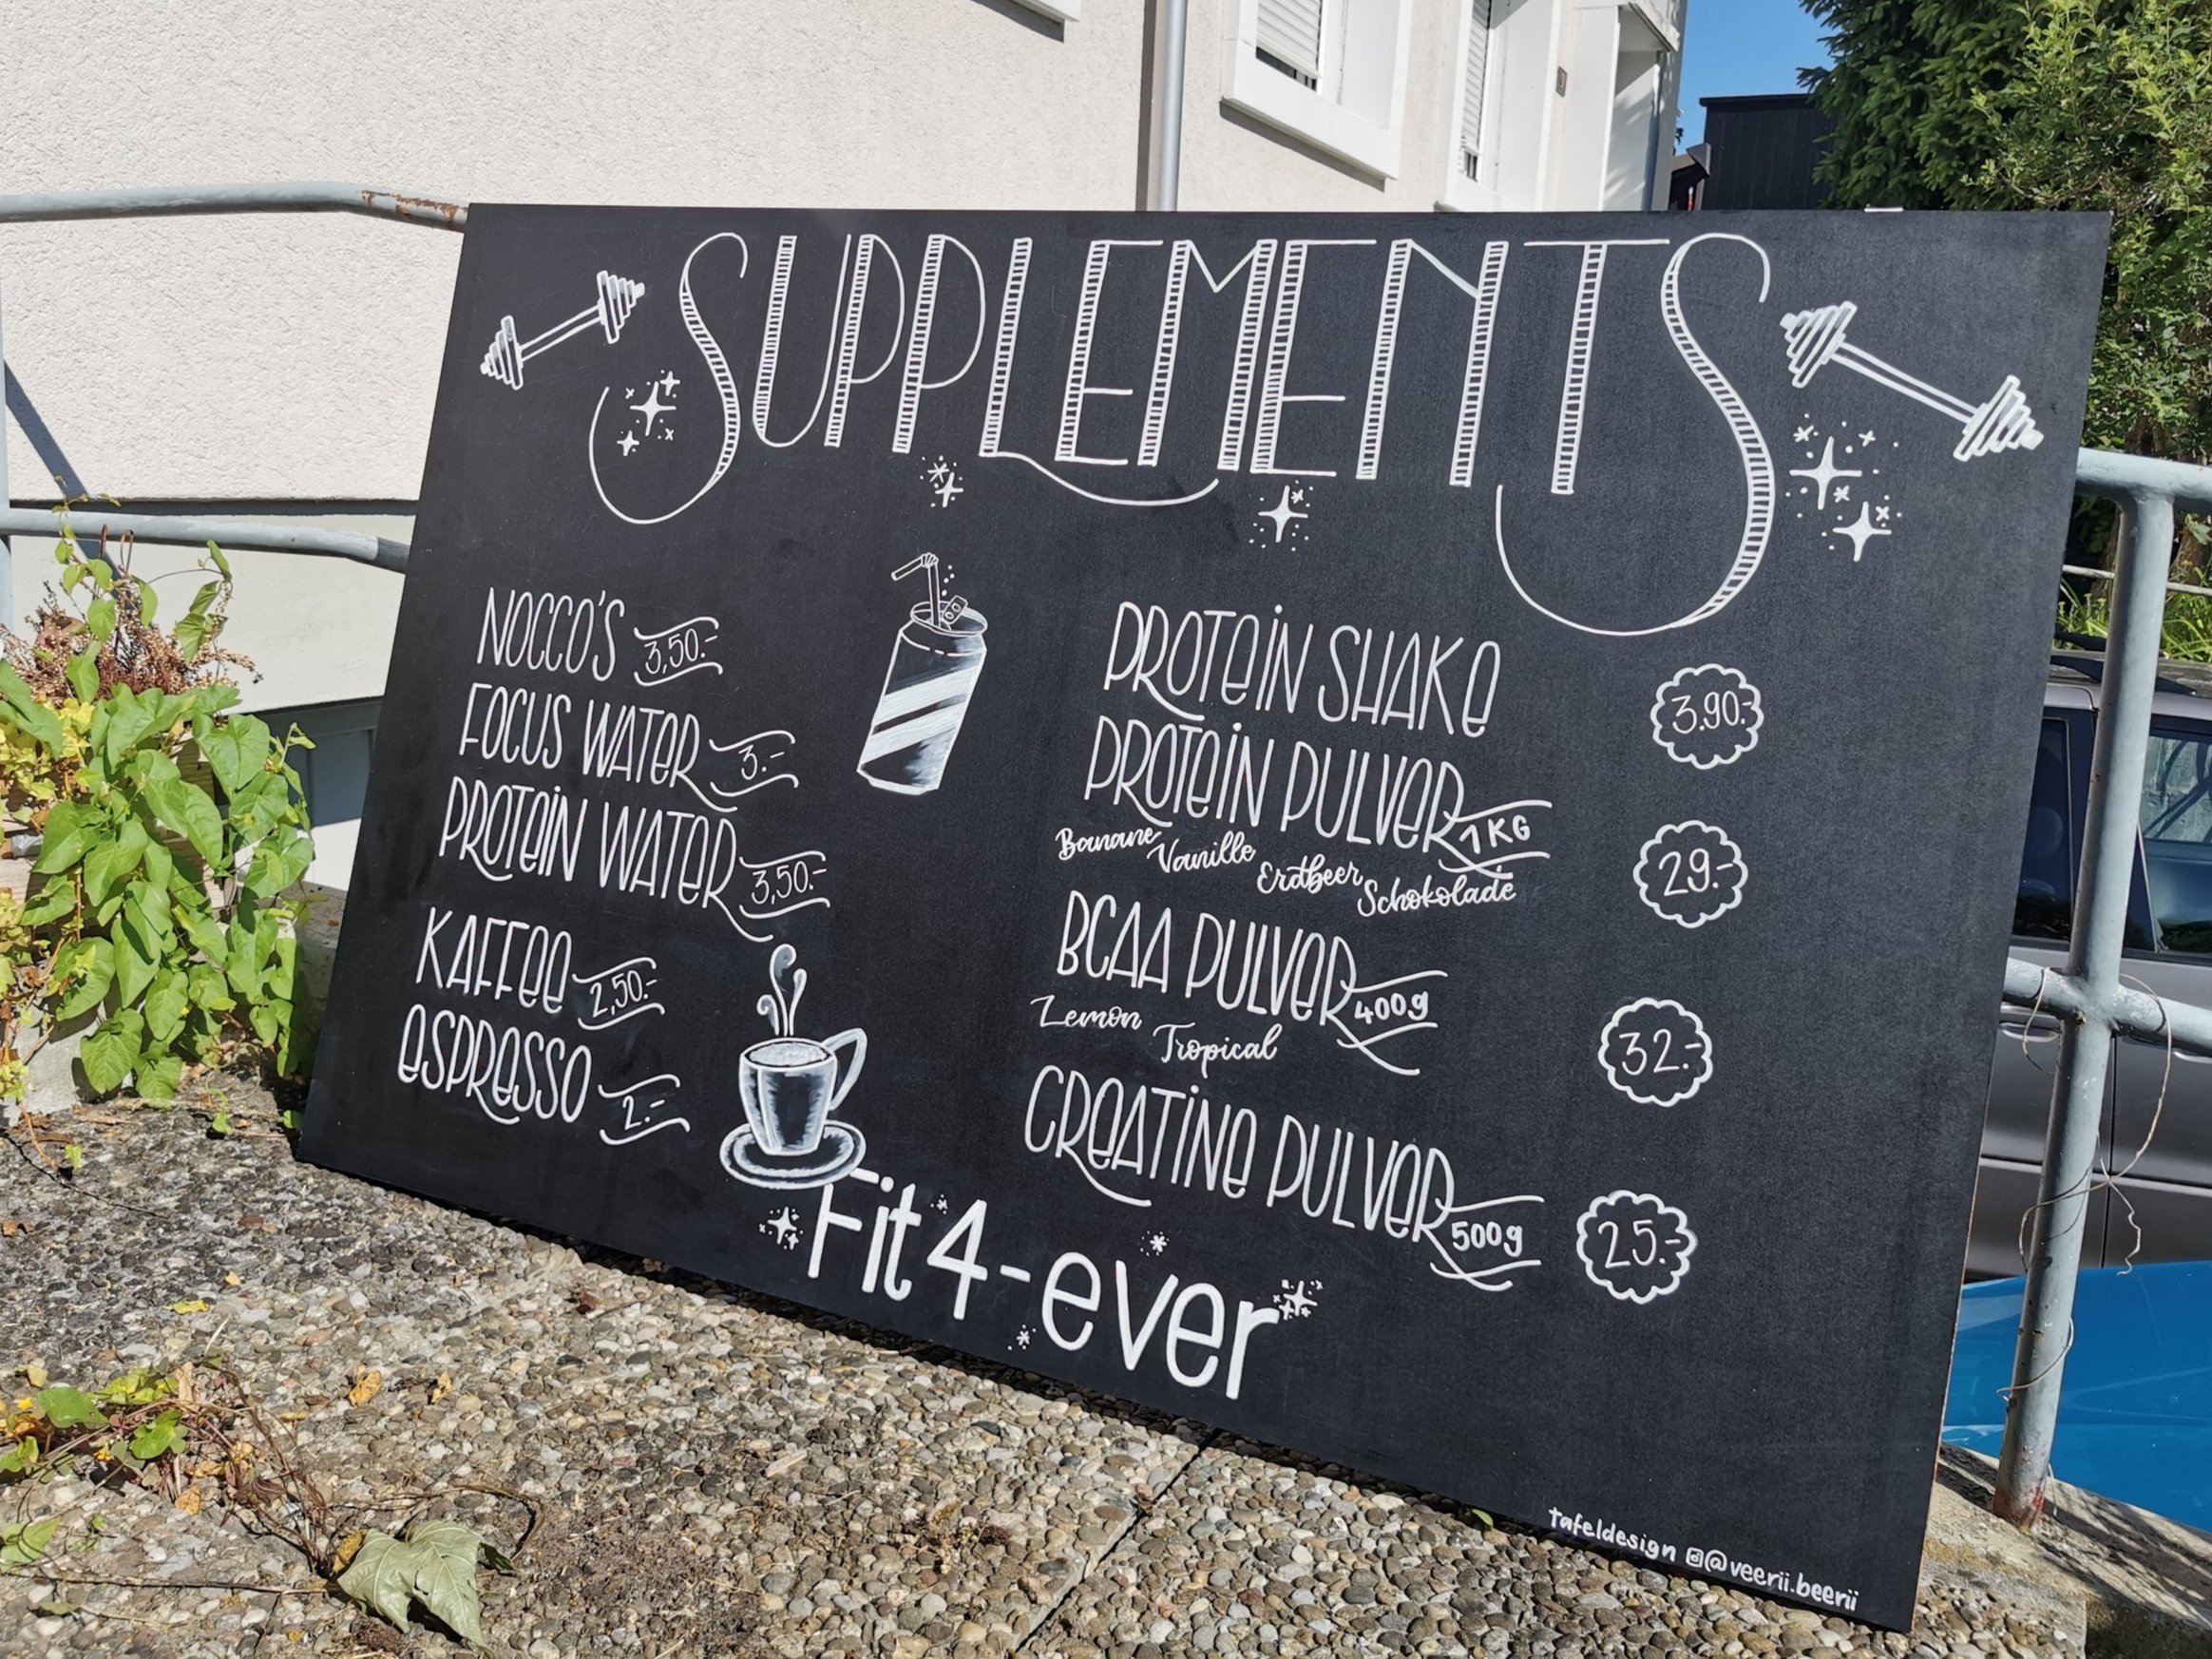 SUPPLEMENTS
NOCCO'S 3,50.-
FOCUS WATER 3.-
PROTEIN WATER 3,50.-
KAFFEE 2,50.-
ESPRESSO 2.-
PROTEIN SHAKE 3.90.-
PROTEIN PULVER 1KG 29.-
Banane Vanille Erdbeer Schokolade
BCAA PULVER 400g 32.-
Lemon Tropical
CREATINE PULVER 500g 25.-
Fit4-ever
tafeldesign @veerii.beerii